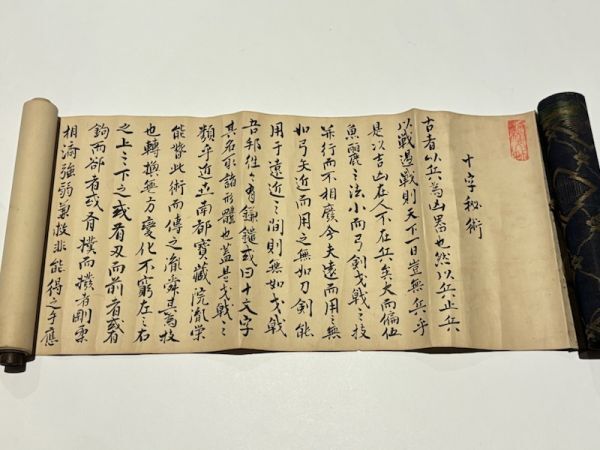 十字秘術
古者以兵為凶器也然以兵止兵
以戰遏戰則天下一日豈無兵乎
是以吉凶在人不在兵矣大而偏伍
魚麗之法小而弓剣戈戟之技
並行而不相廢今夫遠而用之無
如弓矢近而用之無如刀剣能
用于遠近之間則無如戈戟
吾邦往々有鎌鑓或曰十文字
其名取諸形體也蓋是戈戟之
類乎近世南都寶藏院胤栄
能此術而傳之胤舜其為技
也轉換無方變化不窮左之右
之上之下之或有刃而前者或有
鉤而却者或有撲而撥者剛柔
相済強弱兼攻非能得之手應